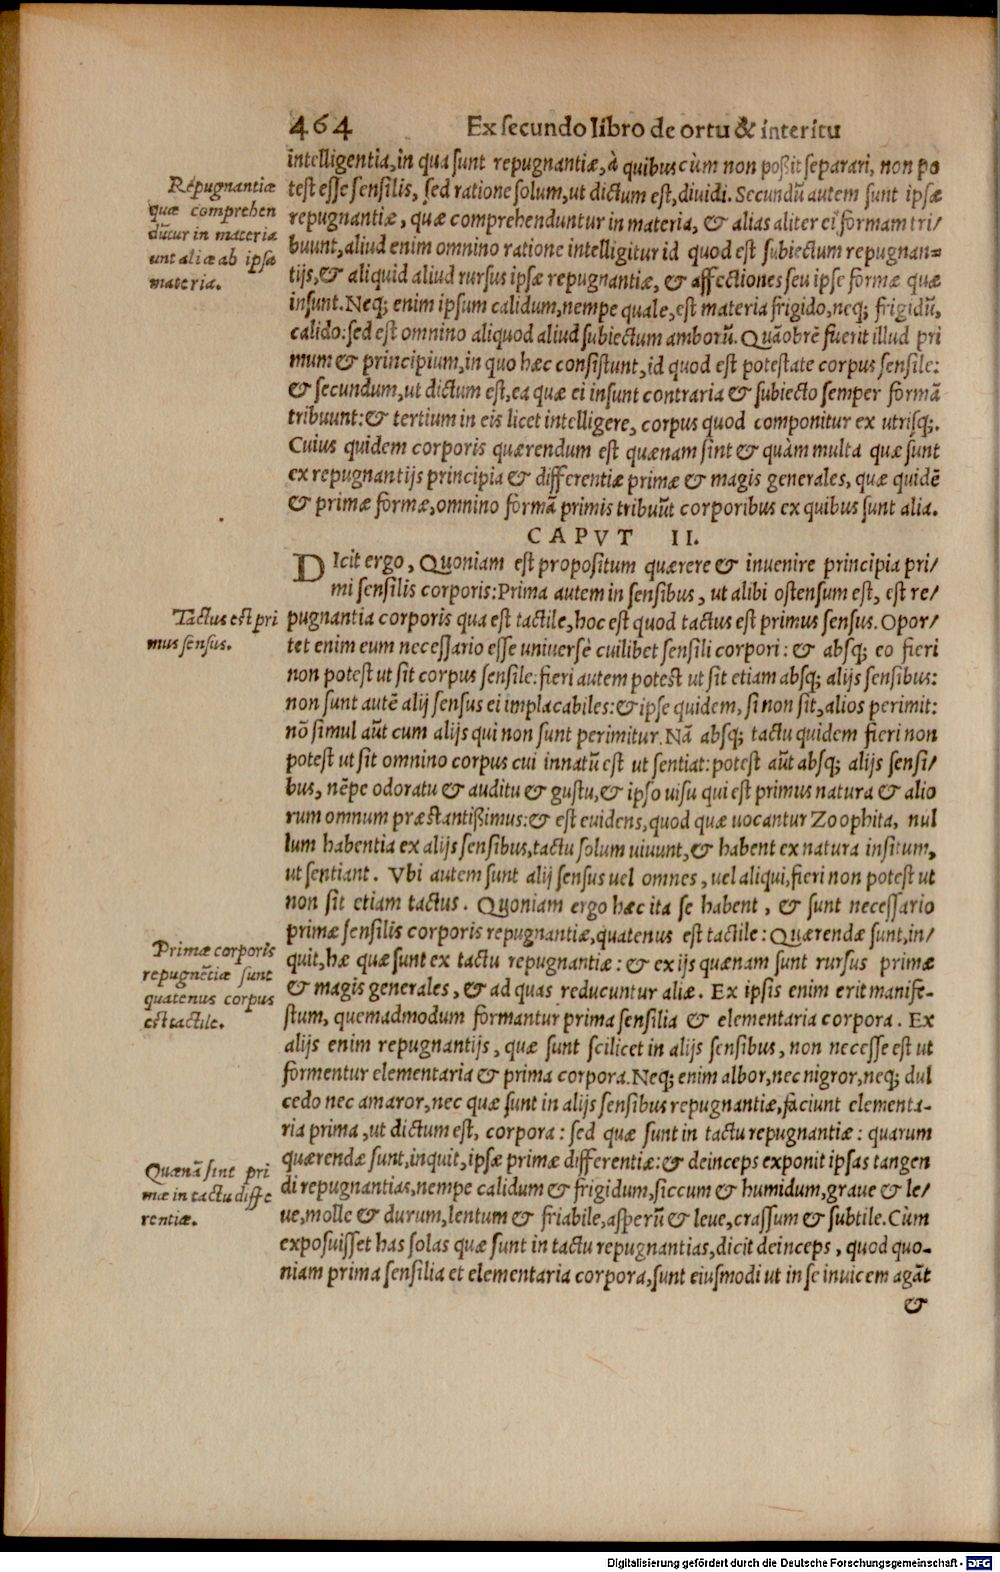 464 Ex secundo libro de ortu & interitu
intelligentia, in qua sunt repugnantiæ, à quibus cùm non poßit separari, non po
test esse sensilis, sed ratione solum, ut dictum est, diuidi. Secundũ autem sunt ipsæ
repugnantiæ, quæ comprehenduntur in materia, & alias aliter ei formam tri/
buunt, aliud enim omnino ratione intelligitur id quod est subiectum repugnan=
tijs, & aliquid aliud rursus ipsæ repugnantiæ, & affectiones seu ipse formæ quæ
insunt. Neq; enim ipsum calidum, nempe quale, est materia frigido, neq; frigidũ,
calido: sed est omnino aliquod aliud subiectum amborũ. Quãobrẽ fuerit illud pri
mum & principium, in quo hæc consistunt, id quod est potestate corpus sensile:
& secundum, ut dictum est, ea quæ ei insunt contraria & subiecto semper formã
tribuunt: & tertium in eis licet intelligere, corpus quod componitur ex utrisq;.
Cuius quidem corporis quærendum est quænam sint & quàm multa quæ sunt
ex repugnantijs principia & differentiæ primæ & magis generales, quæ quidẽ
& primæ formæ, omnino formã primis tribuũt corporibus ex quibus sunt alia.
Repugnantiæ
quæ comprehen
dũtur in materia
unt aliæ ab ipsa
materia.
CAPVT II.
DIcit ergo, Quoniam est propositum quærere & inuenire principia pri/
mi sensilis corporis: Prima autem in sensibus, ut alibi ostensum est, est re/
pugnantia corporis qua est tactile, hoc est quod tactus est primus sensus. Opor/
tet enim eum necessario esse uniuersè cuilibet sensili corpori: & absq; eo fieri
non potest ut sit corpus sensile: fieri autem potest ut sit etiam absq; alijs sensibus:
non sunt autẽ alij sensus ei implacabiles: & ipse quidem, si non sit, alios perimit:
nõ simul aũt cum alijs qui non sunt perimitur. Nã absq; tactu quidem fieri non
potest ut sit omnino corpus cui innatũ est ut sentiat: potest aũt absq; alijs sensi/
bus, nẽpe odoratu & auditu & gustu, & ipso uisu qui est primus natura & alio
rum omnum præstantißimus: & est euidens, quod quæ uocantur Zoophita, nul
lum habentia ex alijs sensibus, tactu solum uiuunt, & habent ex natura insitum,
ut sentiant. Vbi autem sunt alij sensus uel omnes, uel aliqui, fieri non potest ut
non sit etiam tactus. Quoniam ergo hæc ita se habent, & sunt necessario
primæ sensilis corporis repugnantiæ, quatenus est tactile: Quærendæ sunt, in/
quit, hæ quæ sunt ex tactu repugnantiæ: & ex ijs quænam sunt rursus primæ
& magis generales, & ad quas reducuntur aliæ. Ex ipsis enim erit manife-
stum, quemadmodum formantur prima sensilia & elementaria corpora. Ex
alijs enim repugnantijs, quæ sunt scilicet in alijs sensibus, non necesse est ut
formentur elementaria & prima corpora. Neq; enim albor, nec nigror, neq; dul
cedo nec amaror, nec quæ sunt in alijs sensibus repugnantiæ, faciunt elementa-
ria prima, ut dictum est, corpora: sed quæ sunt in tactu repugnantiæ: quarum
quærendæ sunt, inquit, ipsæ primæ differentiæ: & deinceps exponit ipsas tangen
di repugnantias, nempe calidum & frigidum, siccum & humidum, graue & le/
ue, molle & durum, lentum & friabile, asperũ & leue, crassum & subtile. Cùm
exposuisset has solas quæ sunt in tactu repugnantias, dicit deinceps, quod quo-
niam prima sensilia et elementaria corpora, sunt eiusmodi ut in se inuicem agãt
&
Tactus est pri
mus sensus.
Primæ corporis
repugnẽtiæ sunt
quatenus corpus
est tactile.
Quænã sint pri
mæ in tactu diffe
rentiæ.
Digitalisierung gefördert durch die Deutsche Forschungsgemeinschaft - DFG